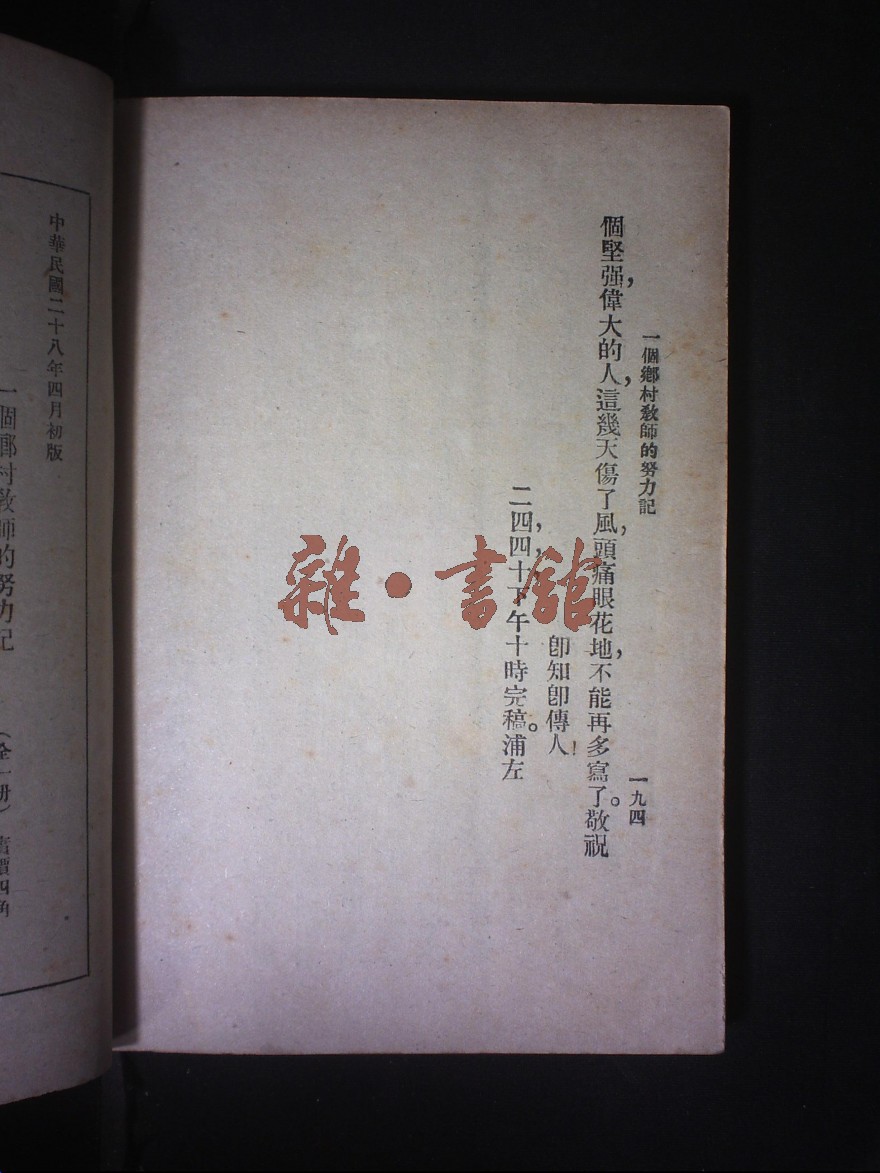 一個鄉村教師的努力記
一九四
個堅强，偉大的人，這幾天傷了風，頭痛眼花地，不能再多寫了。敬祝
卽知卽傳人！
二四，四，十，下午十時完稿。浦左
雜·書館
中華民國二十八年四月初版
一個鄉村教師的努力記
（全一册）